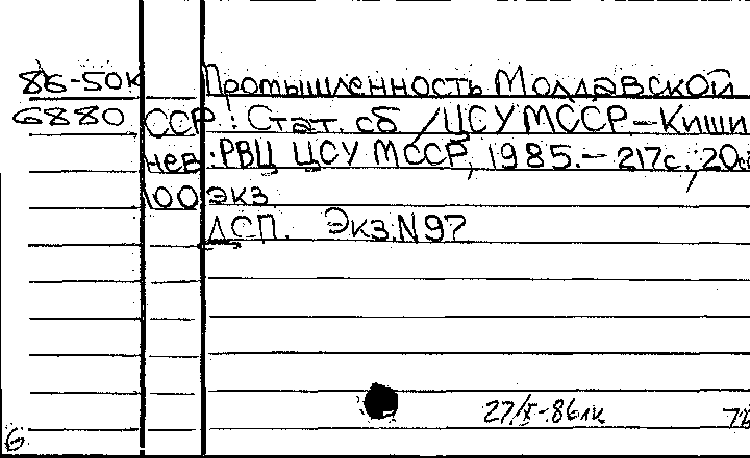 86-50к Промышленность Молдавской
6880 ССР: Стат. сб /ЦСУ МССР – Киши
нев: РВЦ ЦСУ МССР, 1985. – 217с.; 20см
100 экз
ДСП. Экз. N 97
27/X-86
6